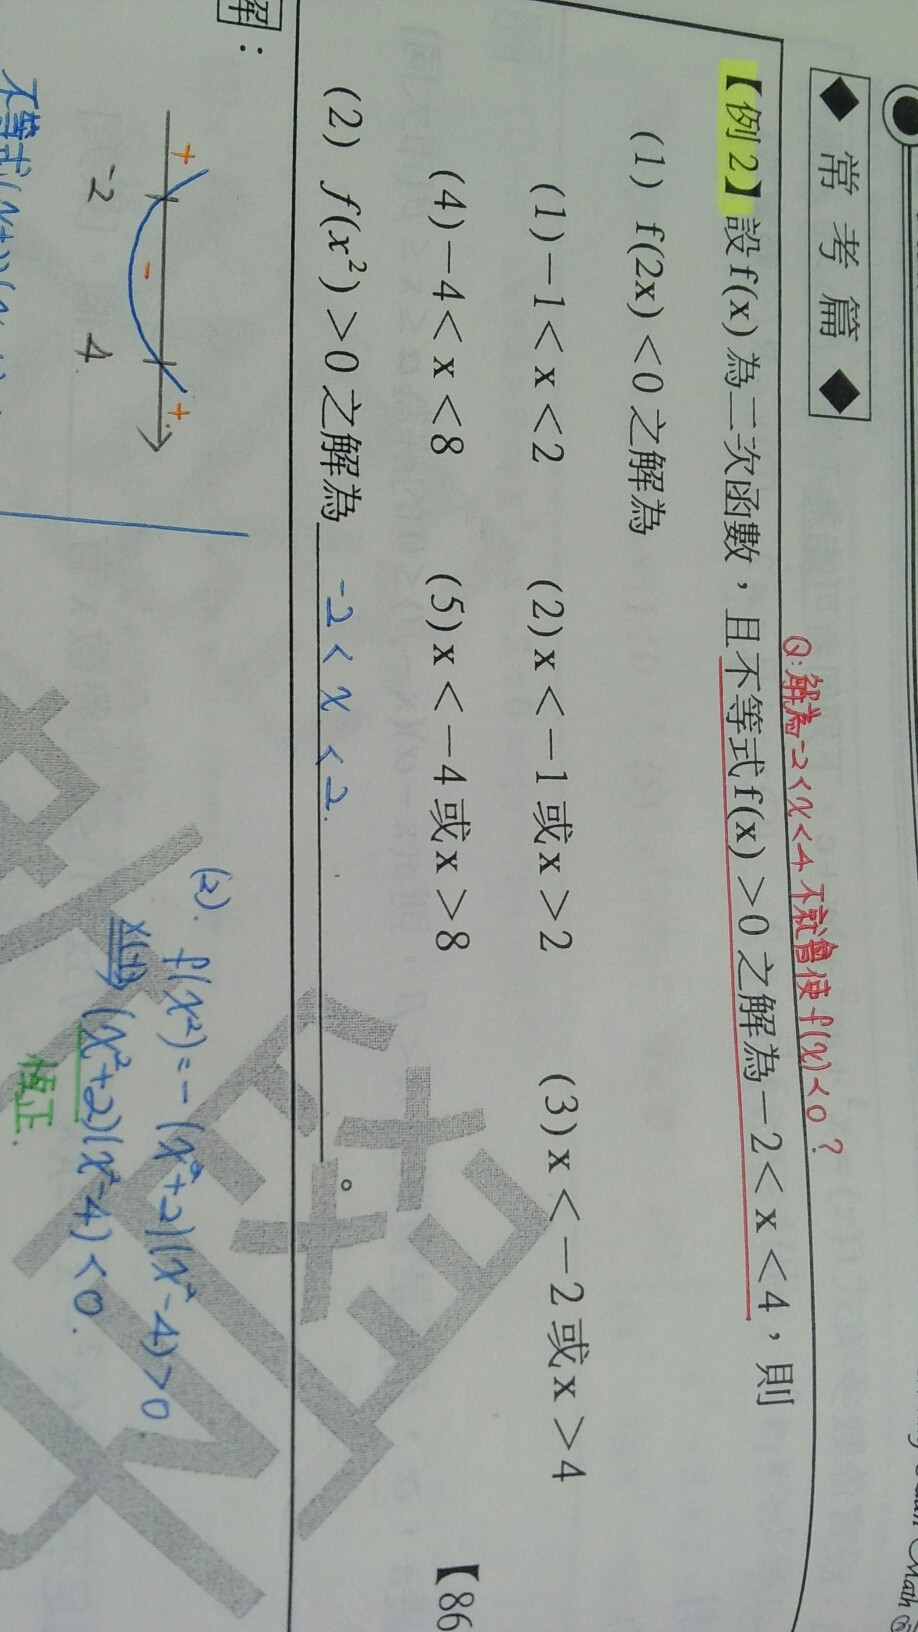 ◆ 常考篇 ◆
Q:解為-2<x<4不就會使f(x)<0?
【例2】設f(x)為二次函數，且不等式f(x)>0之解為-2<x<4，則
(1) f(2x)<0之解為
(1)-1<x<2 (2)x<-1或x>2 (3)x<-2或x>4
(4)-4<x<8 (5)x<-4或x>8 【86
(2) f(x²)>0之解為 -2<x<2. 。
解：
+ - +
-2 4
不等式
(2). f(x²)=-(x²+2)(x²-4)>0.
x(-1) (x²+2)(x²-4)<0.
恆正.